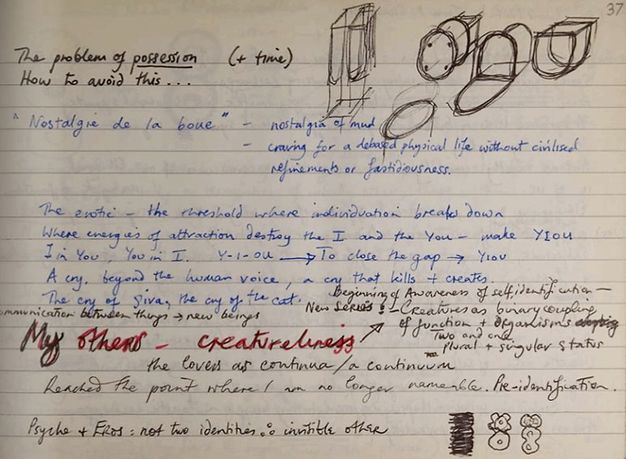 37
The problem of possession (+ time)
How to avoid this...
"Nostalgie de la boue" - nostalgia of mud
- craving for a debased physical life without civilised
refinements or fastidiousness.
The erotic - the threshold where individuation breaks down
Where energies of attraction destroy the I and the You - make YIOU
I in You, You in I. Y-I-OU → To close the gap → YIOU
A cry, beyond the human voice, a cry that kills + creates.
The cry of Siva, the cry of the cat.
Beginning of Awareness of self/identification -
New Series: - Creatures as binary coupling
of function + organisms
Two and one
Plural + singular status
communication between things → new beings
My others - creatureliness
the lovers as continua/a continuum
Reached the point where I am no longer nameable. Pre-identification.
Psyche + Eros: not two identities ∴ invisible other